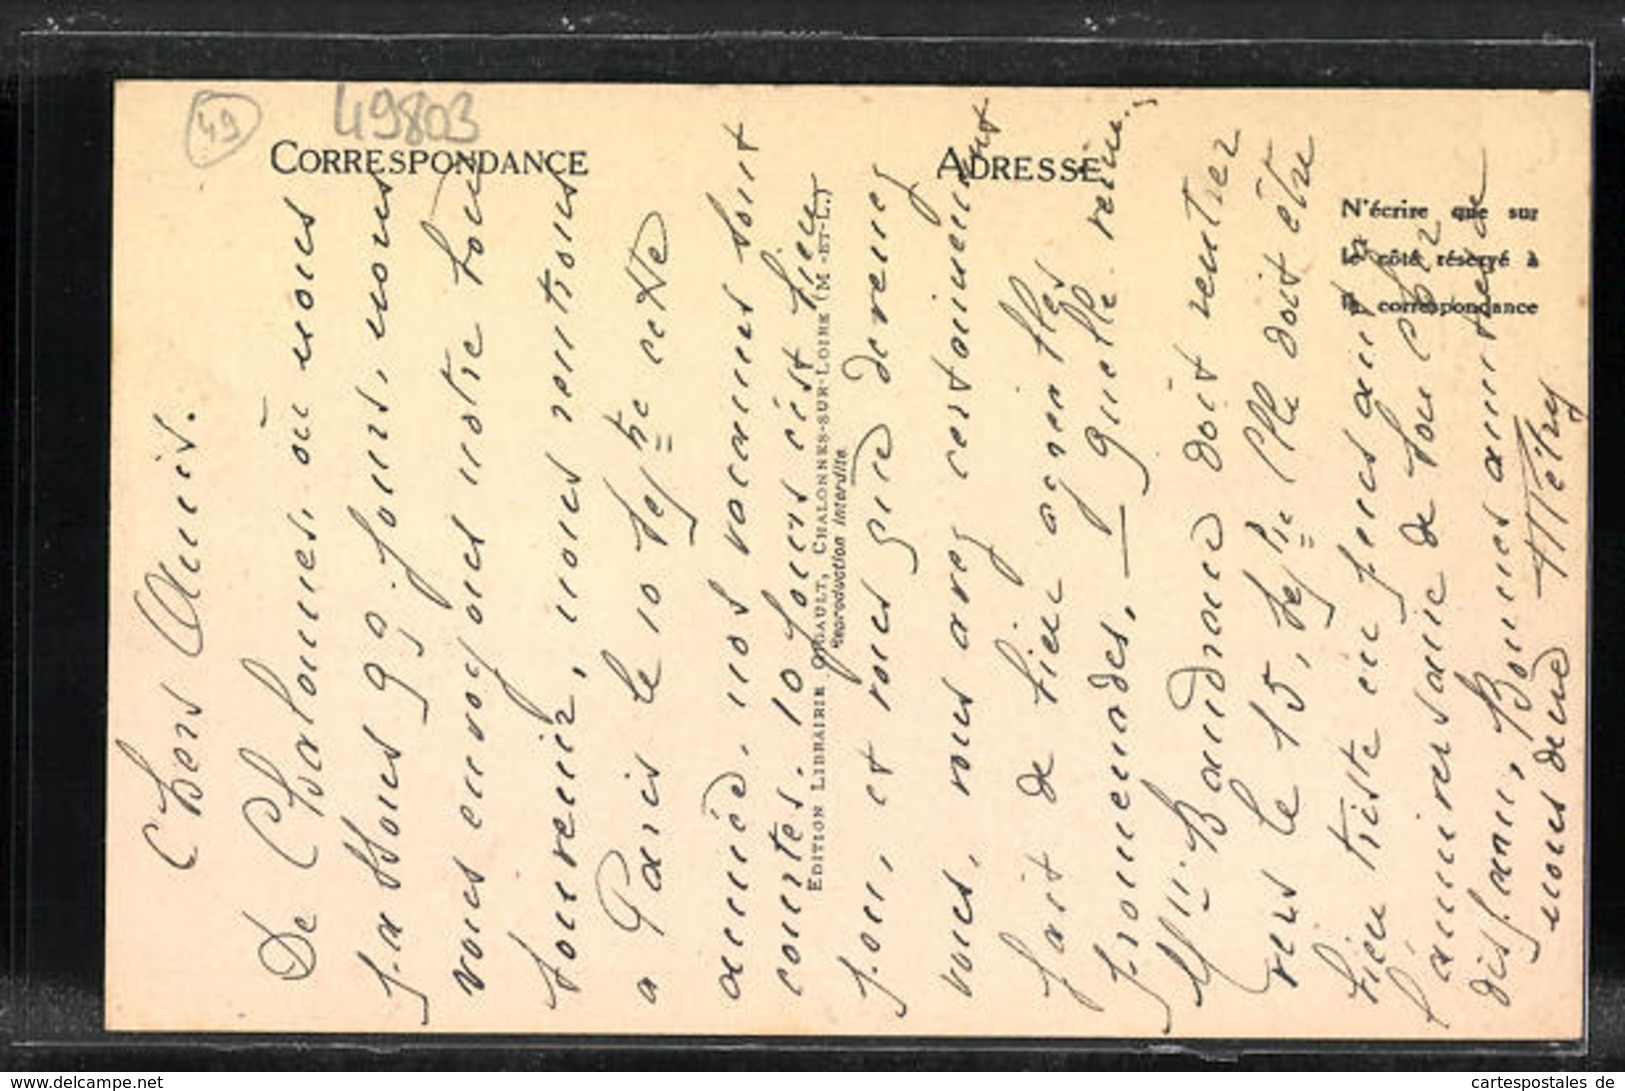 49
49803
CORRESPONDANCE
ADRESSE
N'écrire que sur
le côté réservé à
la correspondance
EDITION LIBRAIRIE ORGAULT, CHALONNES-SUR-LOIRE (M.-ET-L.)
Reproduction interdite
Chers Amis.
De Chalonnes, où nous
passons 99 jours, nous
vous envoyons notre bon
souvenir, nous rentrons
a Paris le 10 Sepbre cette
année, nos vacances sont
courtes. 10 jours c'est bien
peu, et vous que devenez
vous, vous avez certainement
fait de bien agréables
promenades, — quelle veine,
Mlle Baudrand doit rentrer
vers le 15, Sepbre Elle doit être
bien triste en pensant
l'anniversaire de son
disparu, Bonnes amitiés de
nous deux
Métry
www.delcampe.net
cartespostales de